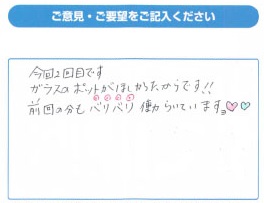 ご意見・ご要望をご記入ください
今回2回目です
ガラスのポットがほしかったからです!!
前回の分もバリバリ働らいています